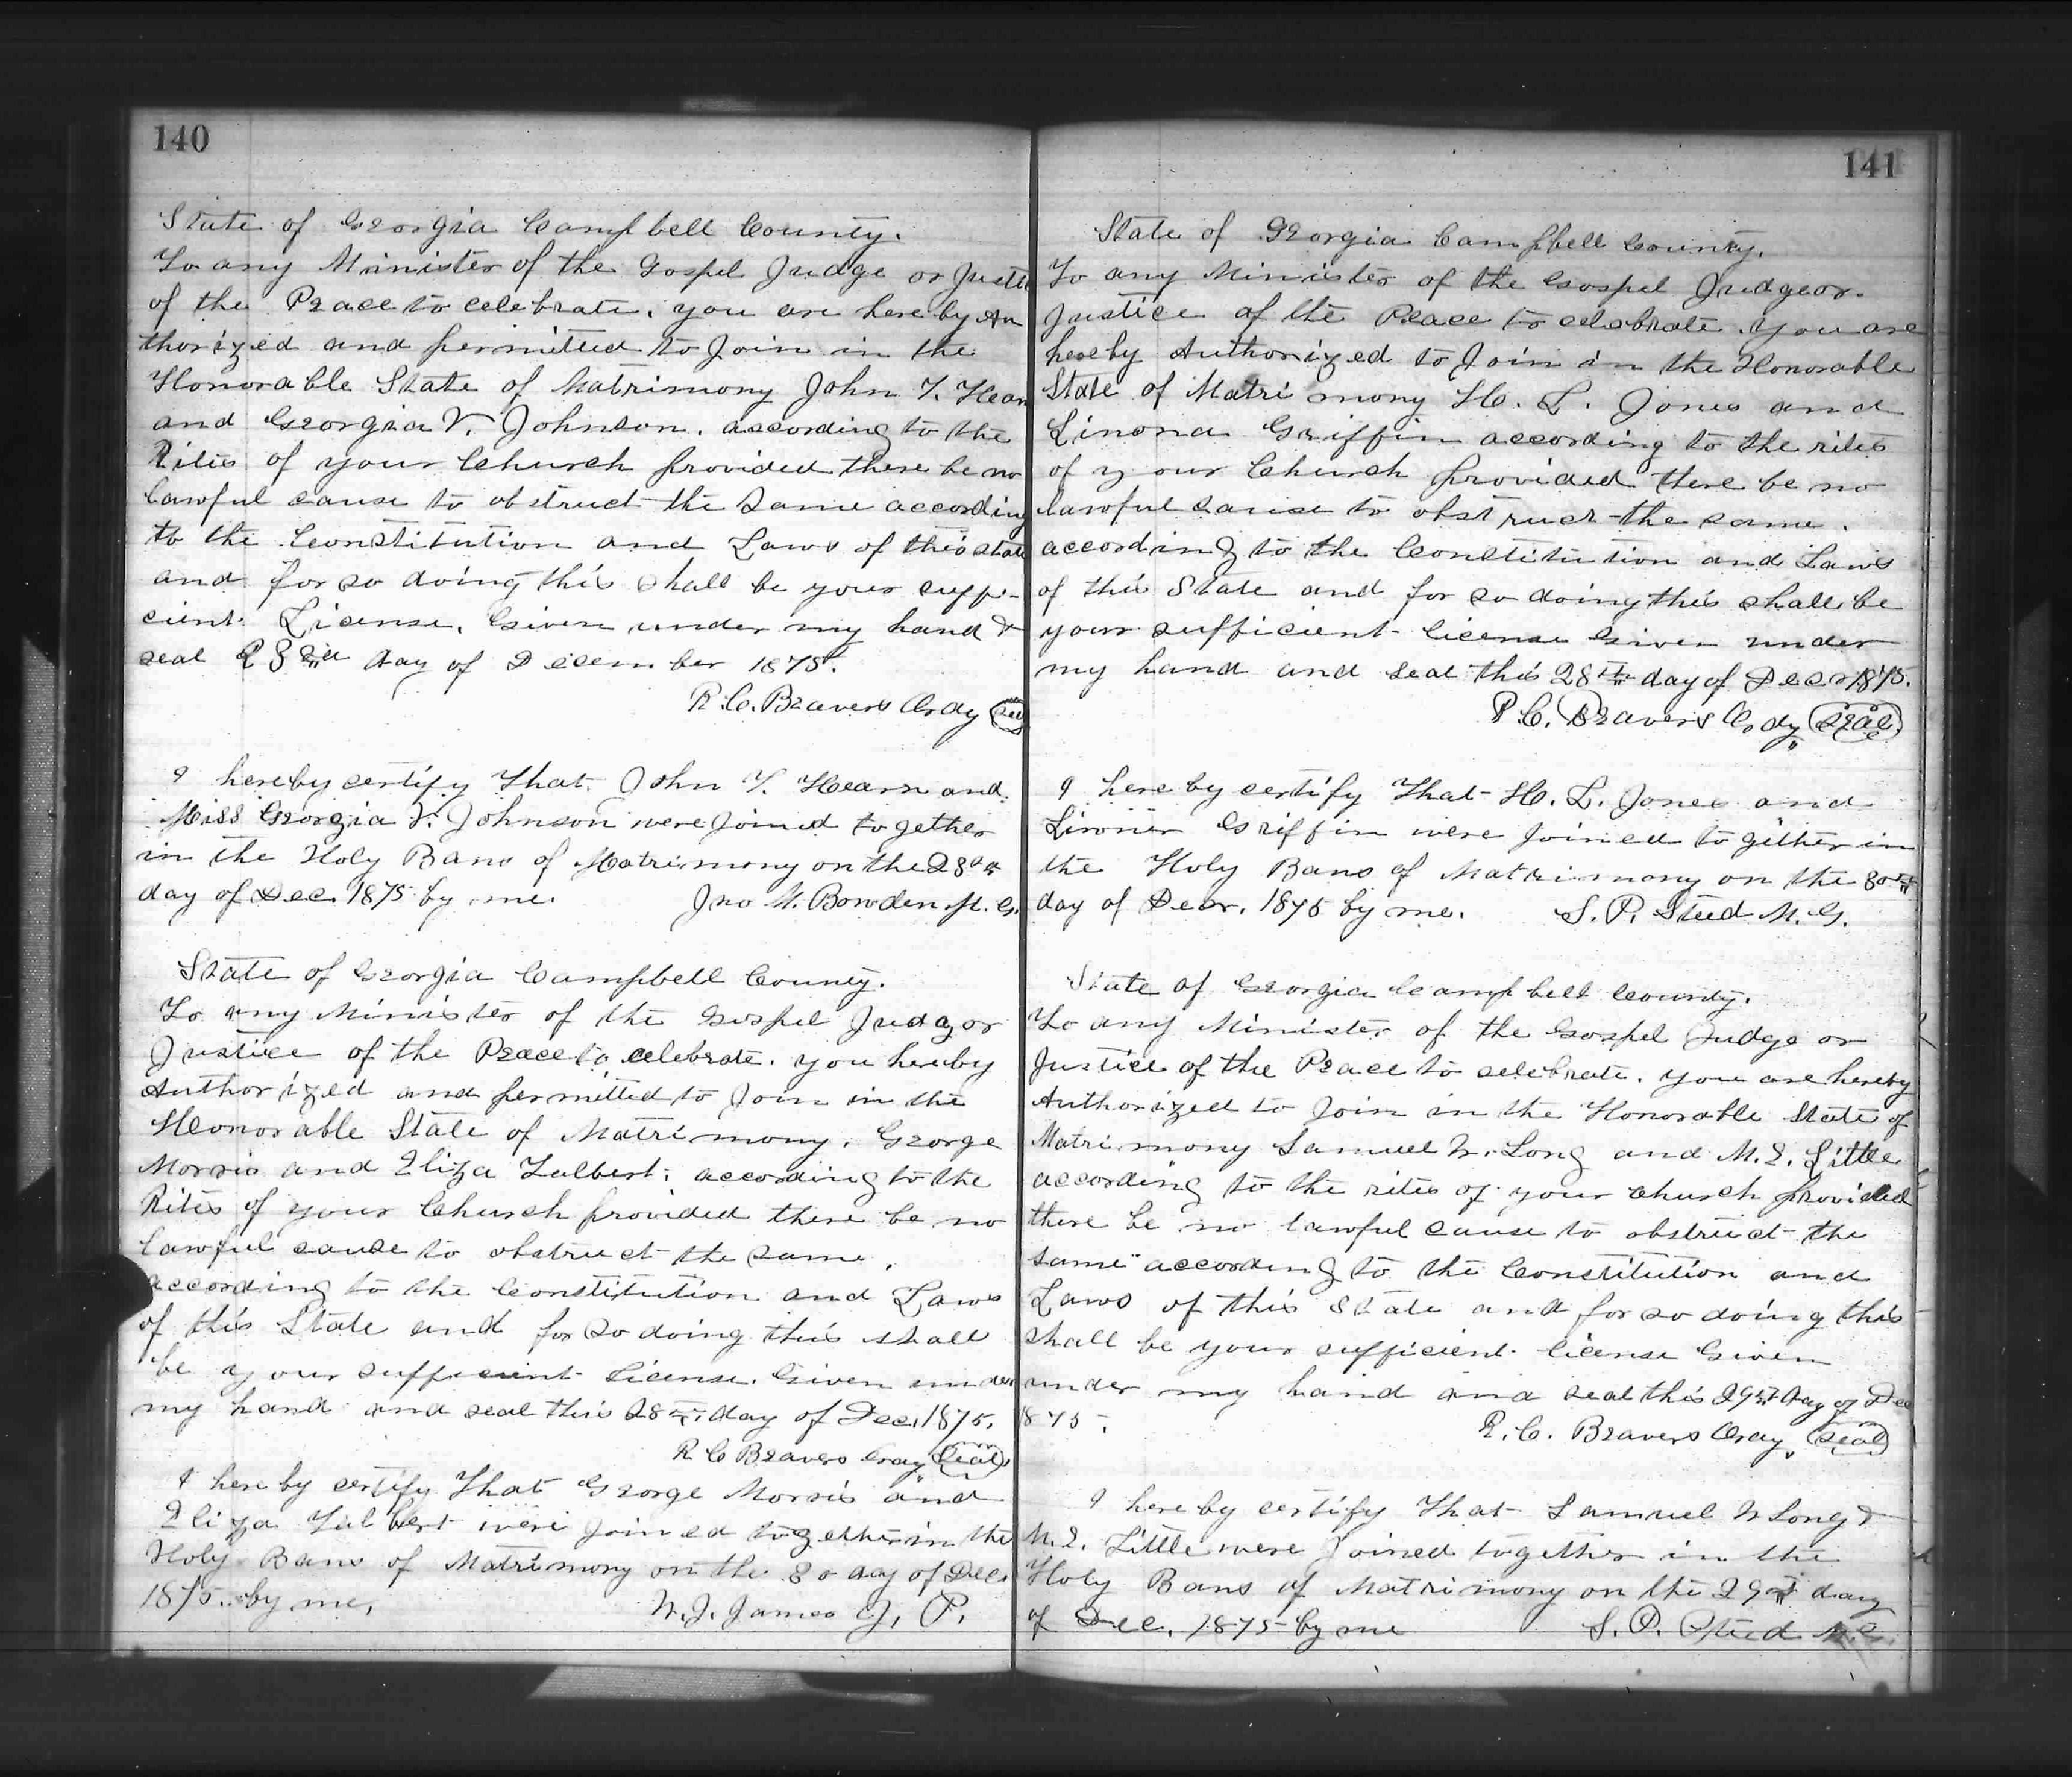 140
State of Georgia Campbell County.
To any Minister of the Gospel Judge or Justi
of the Peace to celebrate. you are hereby Au
thorized and permitted to Join in the
Honorable State of Matrimony John T. Hearn
and Georgia V. Johnson. according to the
Rites of your Church provided there be no
lawful cause to obstruct the same according
to the Constitution and Laws of this state
and for so doing this shall be your suffi-
cient License. Given under my hand &
seal day of December 1875.
R. C. Beavers Ordy seal
I hereby certify That John T. Hearn and
Miss Georgia V. Johnson were Joined together
in the Holy Bans of Matrimony on the
day of Dec. 1875 by me. Jno M. Bowden M. G.
State of Georgia Campbell County.
To any Minister of the Gospel Judg or
Justice of the Peace to celebrate. you hereby
Authorized and permitted to Join in the
Honorable State of Matrimony. George
Morris and Eliza Talbert. according to the
Rites of your Church provided there be no
lawful cause to obstruct the same.
according to the Constitution and Laws
of this State and for so doing this shall
be your sufficient License. Given under
my hand and seal this 28th day of Dec. 1875.
R C Beavers Orday Seal
I hereby certify That George Morris and
Eliza Talbert were Joined together in the
Holy Bans of Matrimony on the 30 day of Dec.
1875. by me, W. J. James J. P.
141
State of Georgia Campbell County.
To any Minister of the Gospel Judge or
Justice of the Peace to celebrate. you are
hereby Authorized to Join in the Honorable
State of Matrimony H. L. Jones and
Linona Griffin according to the rites
of your Church provided there be no
lawful cause to obstruct the same.
according to the Constitution and Laws
of this State and for so doing this shall be
your sufficient license Given under
my hand and seal this 28th day of Decr 1875.
R. C. Beavers Ordy seal
I hereby certify That H. L. Jones and
Griffin were Joined together in
the Holy Bans of Matrimony on the 30th
day of Decr. 1875 by me. S. P. Steed M. G.
State of Georgia Campbell County.
To any Minister of the Gospel Judge or
Justice of the Peace to celebrate. you are hereby
Authorized to Join in the Honorable State of
Matrimony Samuel W. Long and M. E. Little
according to the rites of your Church provided
there be no lawful cause to obstruct the
same according to the Constitution and
Laws of this State and for so doing this
shall be your sufficient license Given
under my hand and seal this 29th day of Dec
1875.
R. C. Beavers Orday. Seal
I hereby certify That Samuel W Long &
M. E. Little were Joined together in the
Holy Bans of Matrimony on the 29th day
of Dec. 1875 by me S. P. Steed M. G.